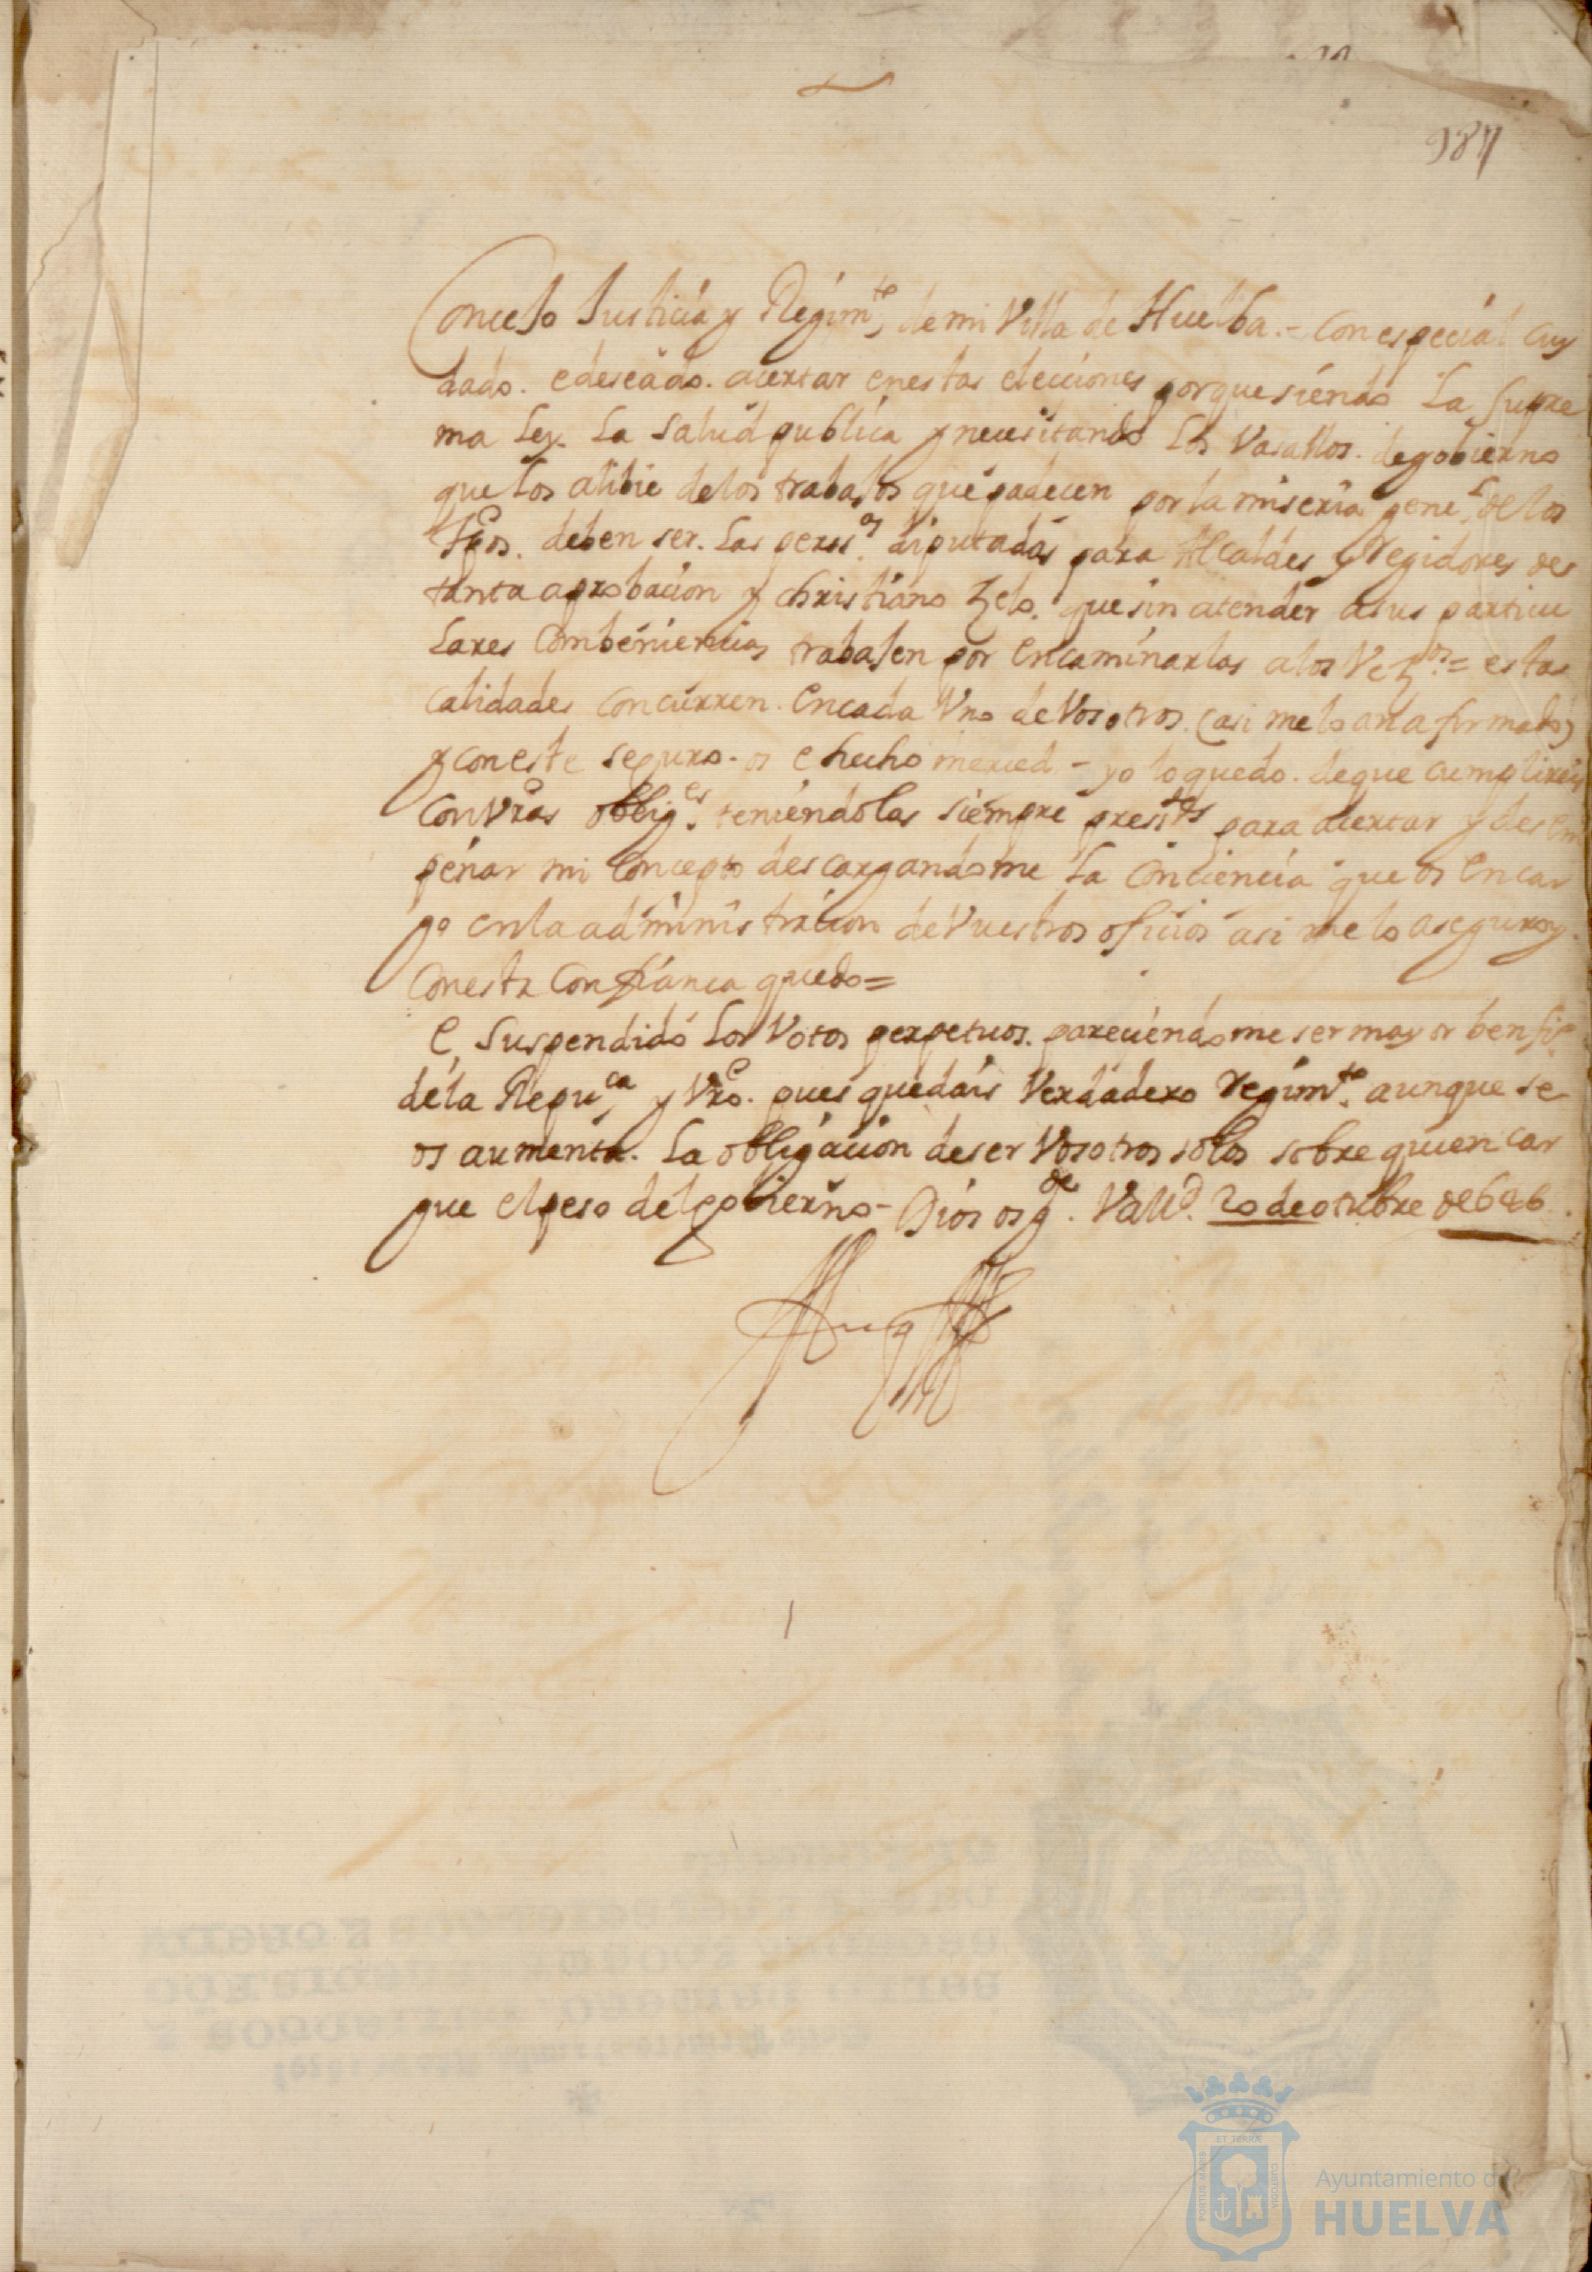 987
Concejo Justicia y Regimto de mi Villa de Huelba.- con especial cuy
dado. e deseado. acertar en estas elecciones porque siendo La supre
ma Ley. La salud publica y necesitando Los Vasallos. de gobierno
que los alibie de los trabajos que padecen por la miseria genel de los
tpos. deben ser. Las persas diputadas para Alcaldes y Regidores de
tanta aprobacion y christiano Zelo. que sin atender a sus particu
Lares Combeniencias trabajen por encaminarlas a los Vezos = estas
calidades concurren. en cada Vno de Vosotros. (asi me lo an afirmado)
y con este seguro. os e hecho merced - yo lo quedo. de que cumplireis
con Vras obliges teniendolas siempre presites para acertar y desem
peñar mi Concepto descargandome La Conciencia que os encar
go en la administracion de Vuestros oficios asi me lo aseguro y
con esta confianca quedo =
E suspendido Los Votos perpetuos. pareciendome ser mayor benfio
de la Repuca y Vro. pues quedais Verdadero regimto. aunque se
os aumenta. La obligacion de ser Vosotros solos sobre quien car
gue el peso del gobierno - Dios os gde. Valld. 20 de otubre de 646
Ayuntamiento de
HUELVA
PORTUS MARIS
ET TERRÆ
CUSTODIA